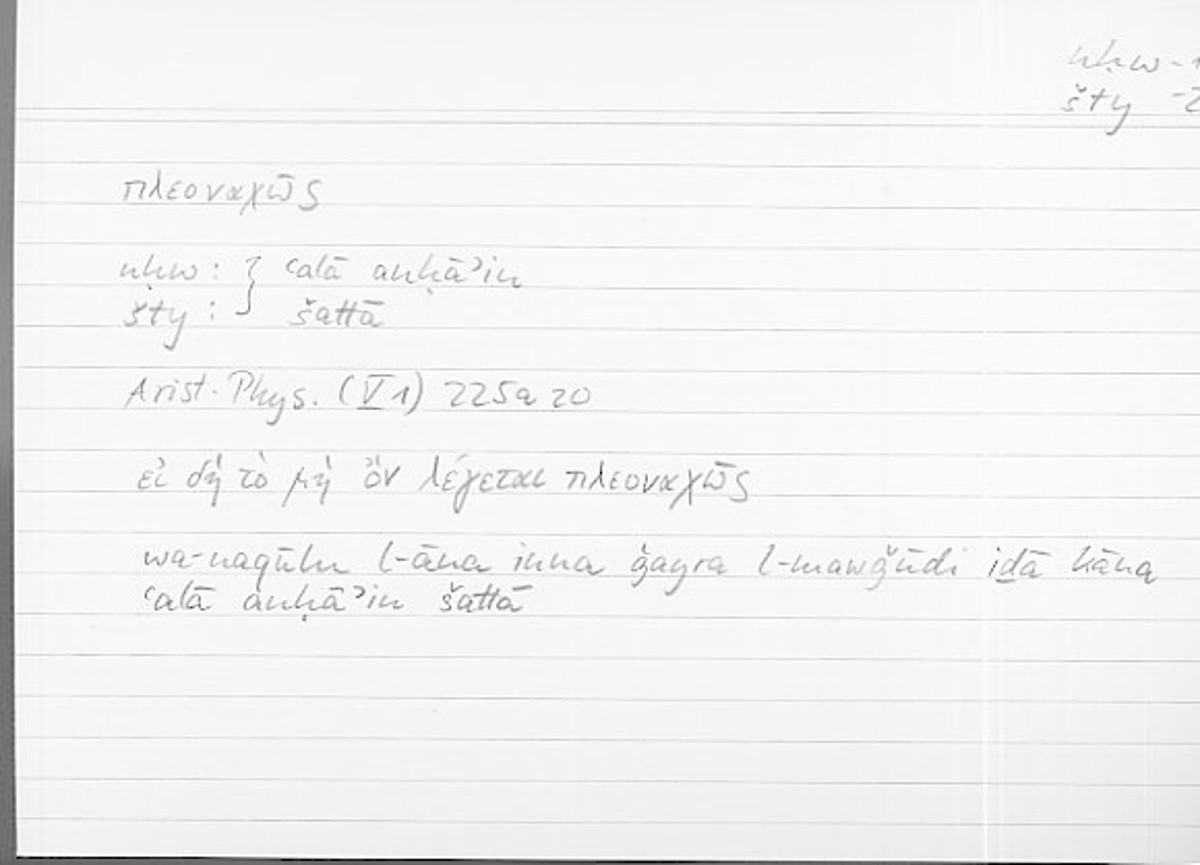 nḥw-1
šty -2
πλεοναχῶς
nḥw : } ʿalā anḥāʾin
šty : } šattā
Arist. Phys. (V 1) 225a 20
εἰ δὴ τὸ μὴ ὂν λέγεται πλεοναχῶς
wa-naqūlu l-āna inna ġayra l-mawǧūdi iḏā kāna
ʿalā anḥāʾin šattā